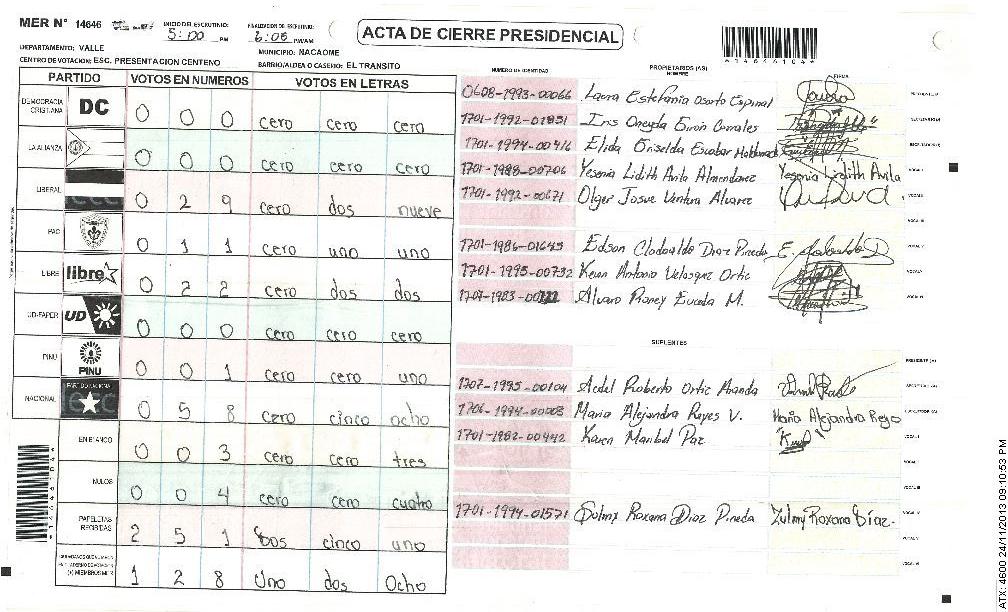 MER N° 14646
INICIO DEL ESCRUTINIO:
5:00 PM
FINALIZACION DEL ESCRUTINIO:
6:08 PM/AM
ACTA DE CIERRE PRESIDENCIAL
DEPARTAMENTO: VALLE
MUNICIPIO: NACAOME
CENTRO DE VOTACION: ESC. PRESENTACION CENTENO
BARRIO/ALDEA O CASERIO: EL TRANSITO
PARTIDO VOTOS EN NUMEROS VOTOS EN LETRAS
DEMOCRACIA CRISTIANA DC 0 0 0 cero cero cero
LA ALIANZA 0 0 0 cero cero cero
LIBERAL 0 2 9 cero dos nueve
PAC 0 1 1 cero uno uno
LIBRE libre 0 2 2 cero dos dos
UD-FAPER UD 0 0 0 cero cero cero
PINU PINU 0 0 1 cero cero uno
NACIONAL 0 5 8 cero cinco ocho
EN BLANCO 0 0 3 cero cero tres
NULOS 0 0 4 cero cero cuatro
PAPELETAS RECIBIDAS 2 5 1 dos cinco uno
1 2 8 Uno dos Ocho
NUMERO DE IDENTIDAD PROPIETARIOS (AS) NOMBRE FIRMA
0608-1993-00066 Laura Estefania Osorto Espinal
1701-1992-01851 Iris Oneyda Giron Corrales
1701-1994-00416 Elida Griselda Escobar Maldonado
1701-1988-00706 Yesenia Lidith Avila Almendarez Yesenia Lidith Avila
1701-1992-00671 Olger Josue Ventura Alvarez
1701-1986-01645 Edson Clodoaldo Diaz Pineda
1701-1995-00732 Kevin Antonio Velasquez Ortiz
Alvaro Raney Euceda M.
SUPLENTES
1707-1995-00104 Acdel Roberto Ortiz Aranda
1706-1994-00008 Maria Alejandra Reyes V. Maria Alejandra Reyes
1701-1982-00442 Karen Maribel Paz
1701-1994-01571 Zulmy Roxana Diaz Pineda Zulmy Roxana Díaz.
ATX: 4600 24/11/2013 09:10:53 PM